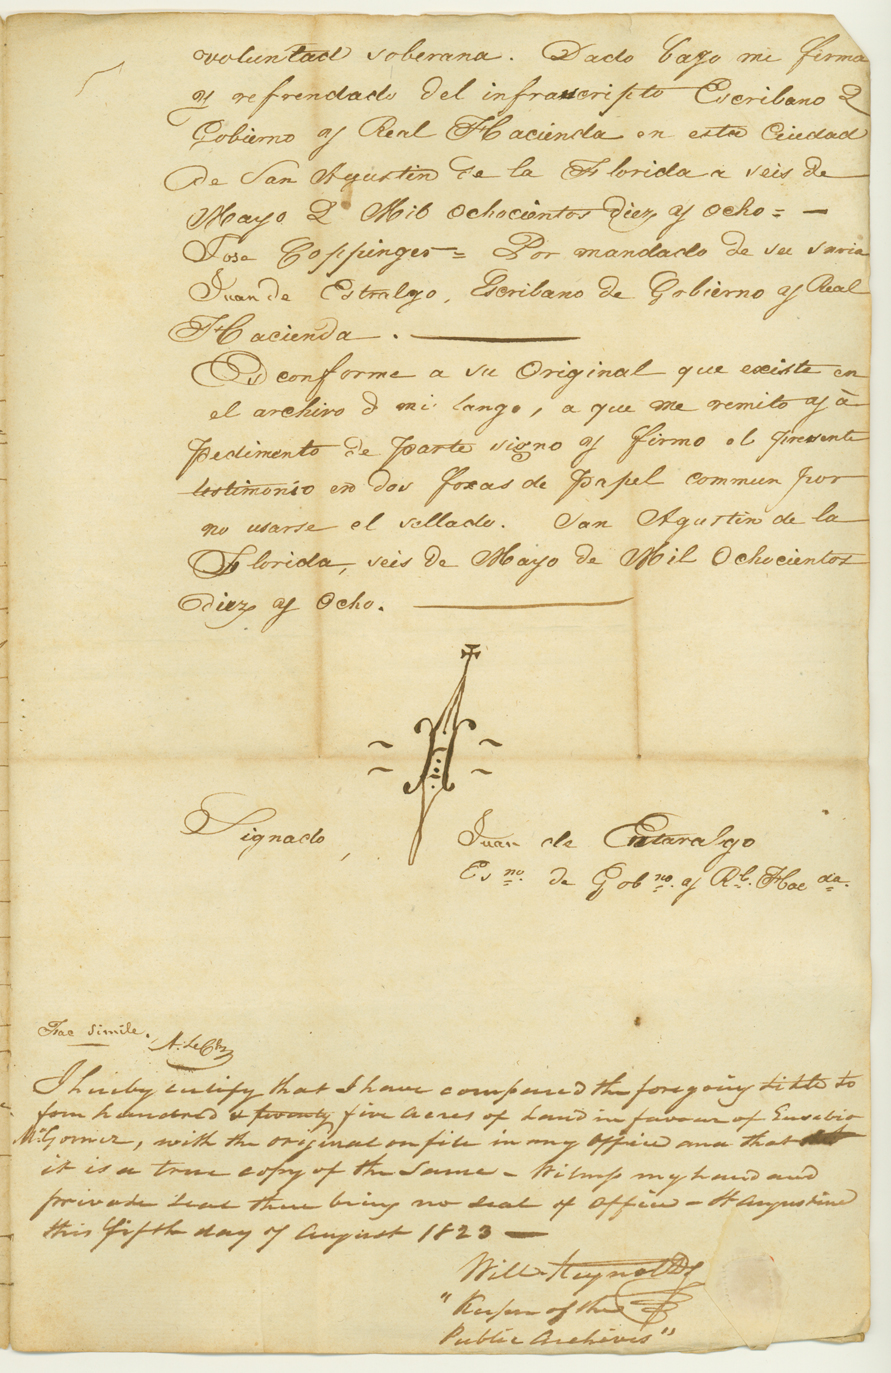 voluntad soberana. Dado bajo mi firma
y refrendado del infrascripto Escribano D
Gobierno y Real Hacienda en esta Ciudad
de San Agustin de la Florida a seis de
Mayo D Mil Ochocientos Diez y Ocho = —
Jose Coppinger = Por mandado de su
Juan de Estralgo, Escribano de Gobierno y Real
Hacienda. —
Es conforme a su Original que existe en
el archivo d mi cargo, a que me remito y à
pedimento de parte signo y firmo el presente
testimonio en dos foxas de Papel commun por
no usarse el sellado. San Agustin de la
Florida, seis de Mayo de Mil Ochocientos
diez y Ocho. —
Signado, Juan de Entralgo
Esno. de Gobno. y Rl. Hacda.
Fac Simile.
I hereby certify that I have compared the foregoing title to
four hundred & twenty five Acres of Land in favour of Eusebio
Ma. Gomez, with the original on file in my office and that
it is a true copy of the Same - Witness my hand and
private Seal there being no Seal of Office - St Augustine
this fifth day of August 1823 —
Will Reynolds
"Keeper of the
Public Archives"